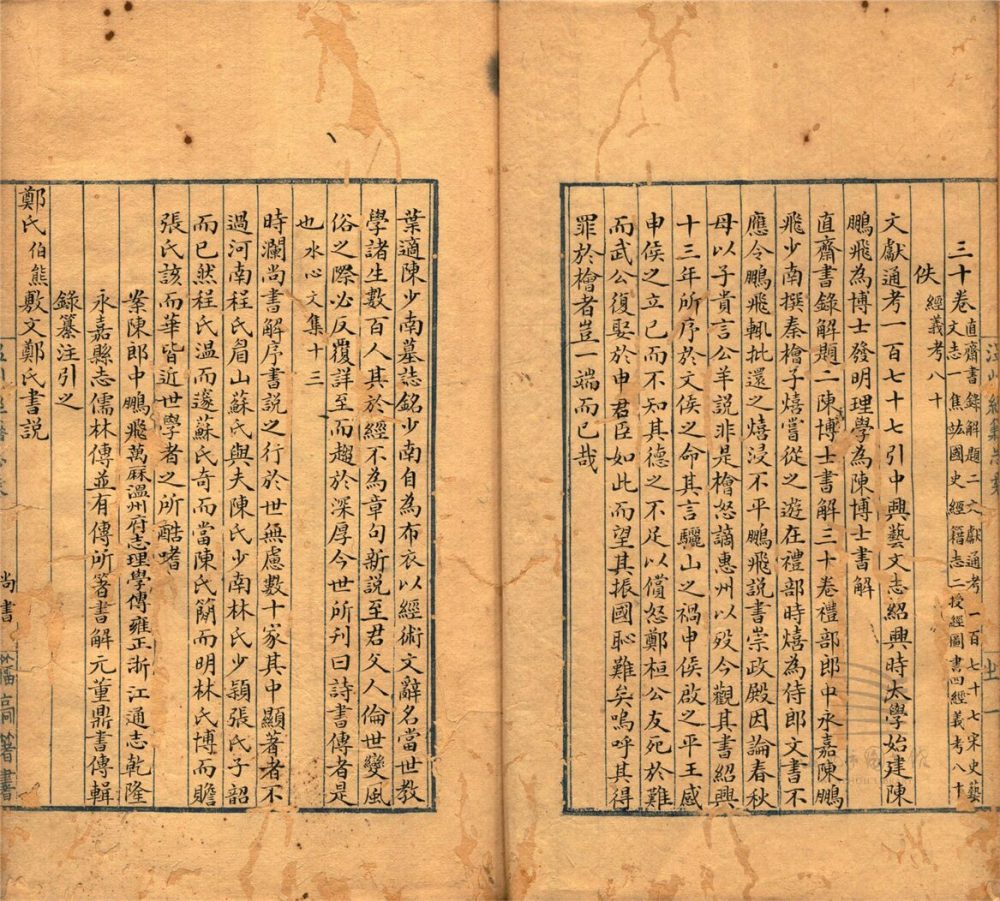 三十卷直齋書錄解題二文獻通考一百七十七宋史藝文志一焦竑國史經籍志二授經圖書四經義考八十
佚經義考八十
文獻通考一百七十七引中興藝文志紹興時太學始建陳
鵬飛為博士發明理學為陳博士書解
直齋書錄解題二陳博士書解三十卷禮部郎中永嘉陳鵬
飛少南撰秦檜子熺嘗從之遊在禮部時熺為侍郎文書不
應令鵬飛輒批還之熺浸不平鵬飛說書崇政殿因論春秋
母以子貴言公羊說非是檜怒謫惠州以歿今觀其書紹興
十三年所序於文侯之命其言驪山之禍申侯啟之平王感
申侯之立己而不知其德之不足以償怨鄭桓公友死於難
而武公復娶於申君臣如此而望其振國恥難矣嗚呼其得
罪於檜者豈一端而已哉
葉適陳少南墓誌銘少南自為布衣以經術文辭名當世教
學諸生數百人其於經不為章句新說至君父人倫世變風
俗之際必反覆詳至而趨於深厚今世所刊曰詩書傳者是
也水心文集十三
時瀾尚書解序書說之行於世無慮數十家其中顯著者不
過河南程氏眉山蘇氏與夫陳氏少南林氏少穎張氏子韶
而已然程氏溫而邃蘇氏奇而當陳氏簡而明林氏博而贍
張氏該而華皆近世學者之所酷嗜
案陳郎中鵬飛萬厤溫州府志理學傳雍正浙江通志乾隆
永嘉縣志儒林傳並有傳所箸書解元董鼎書傳輯
錄纂注引之
鄭氏伯熊敷文鄭氏書說
尚書